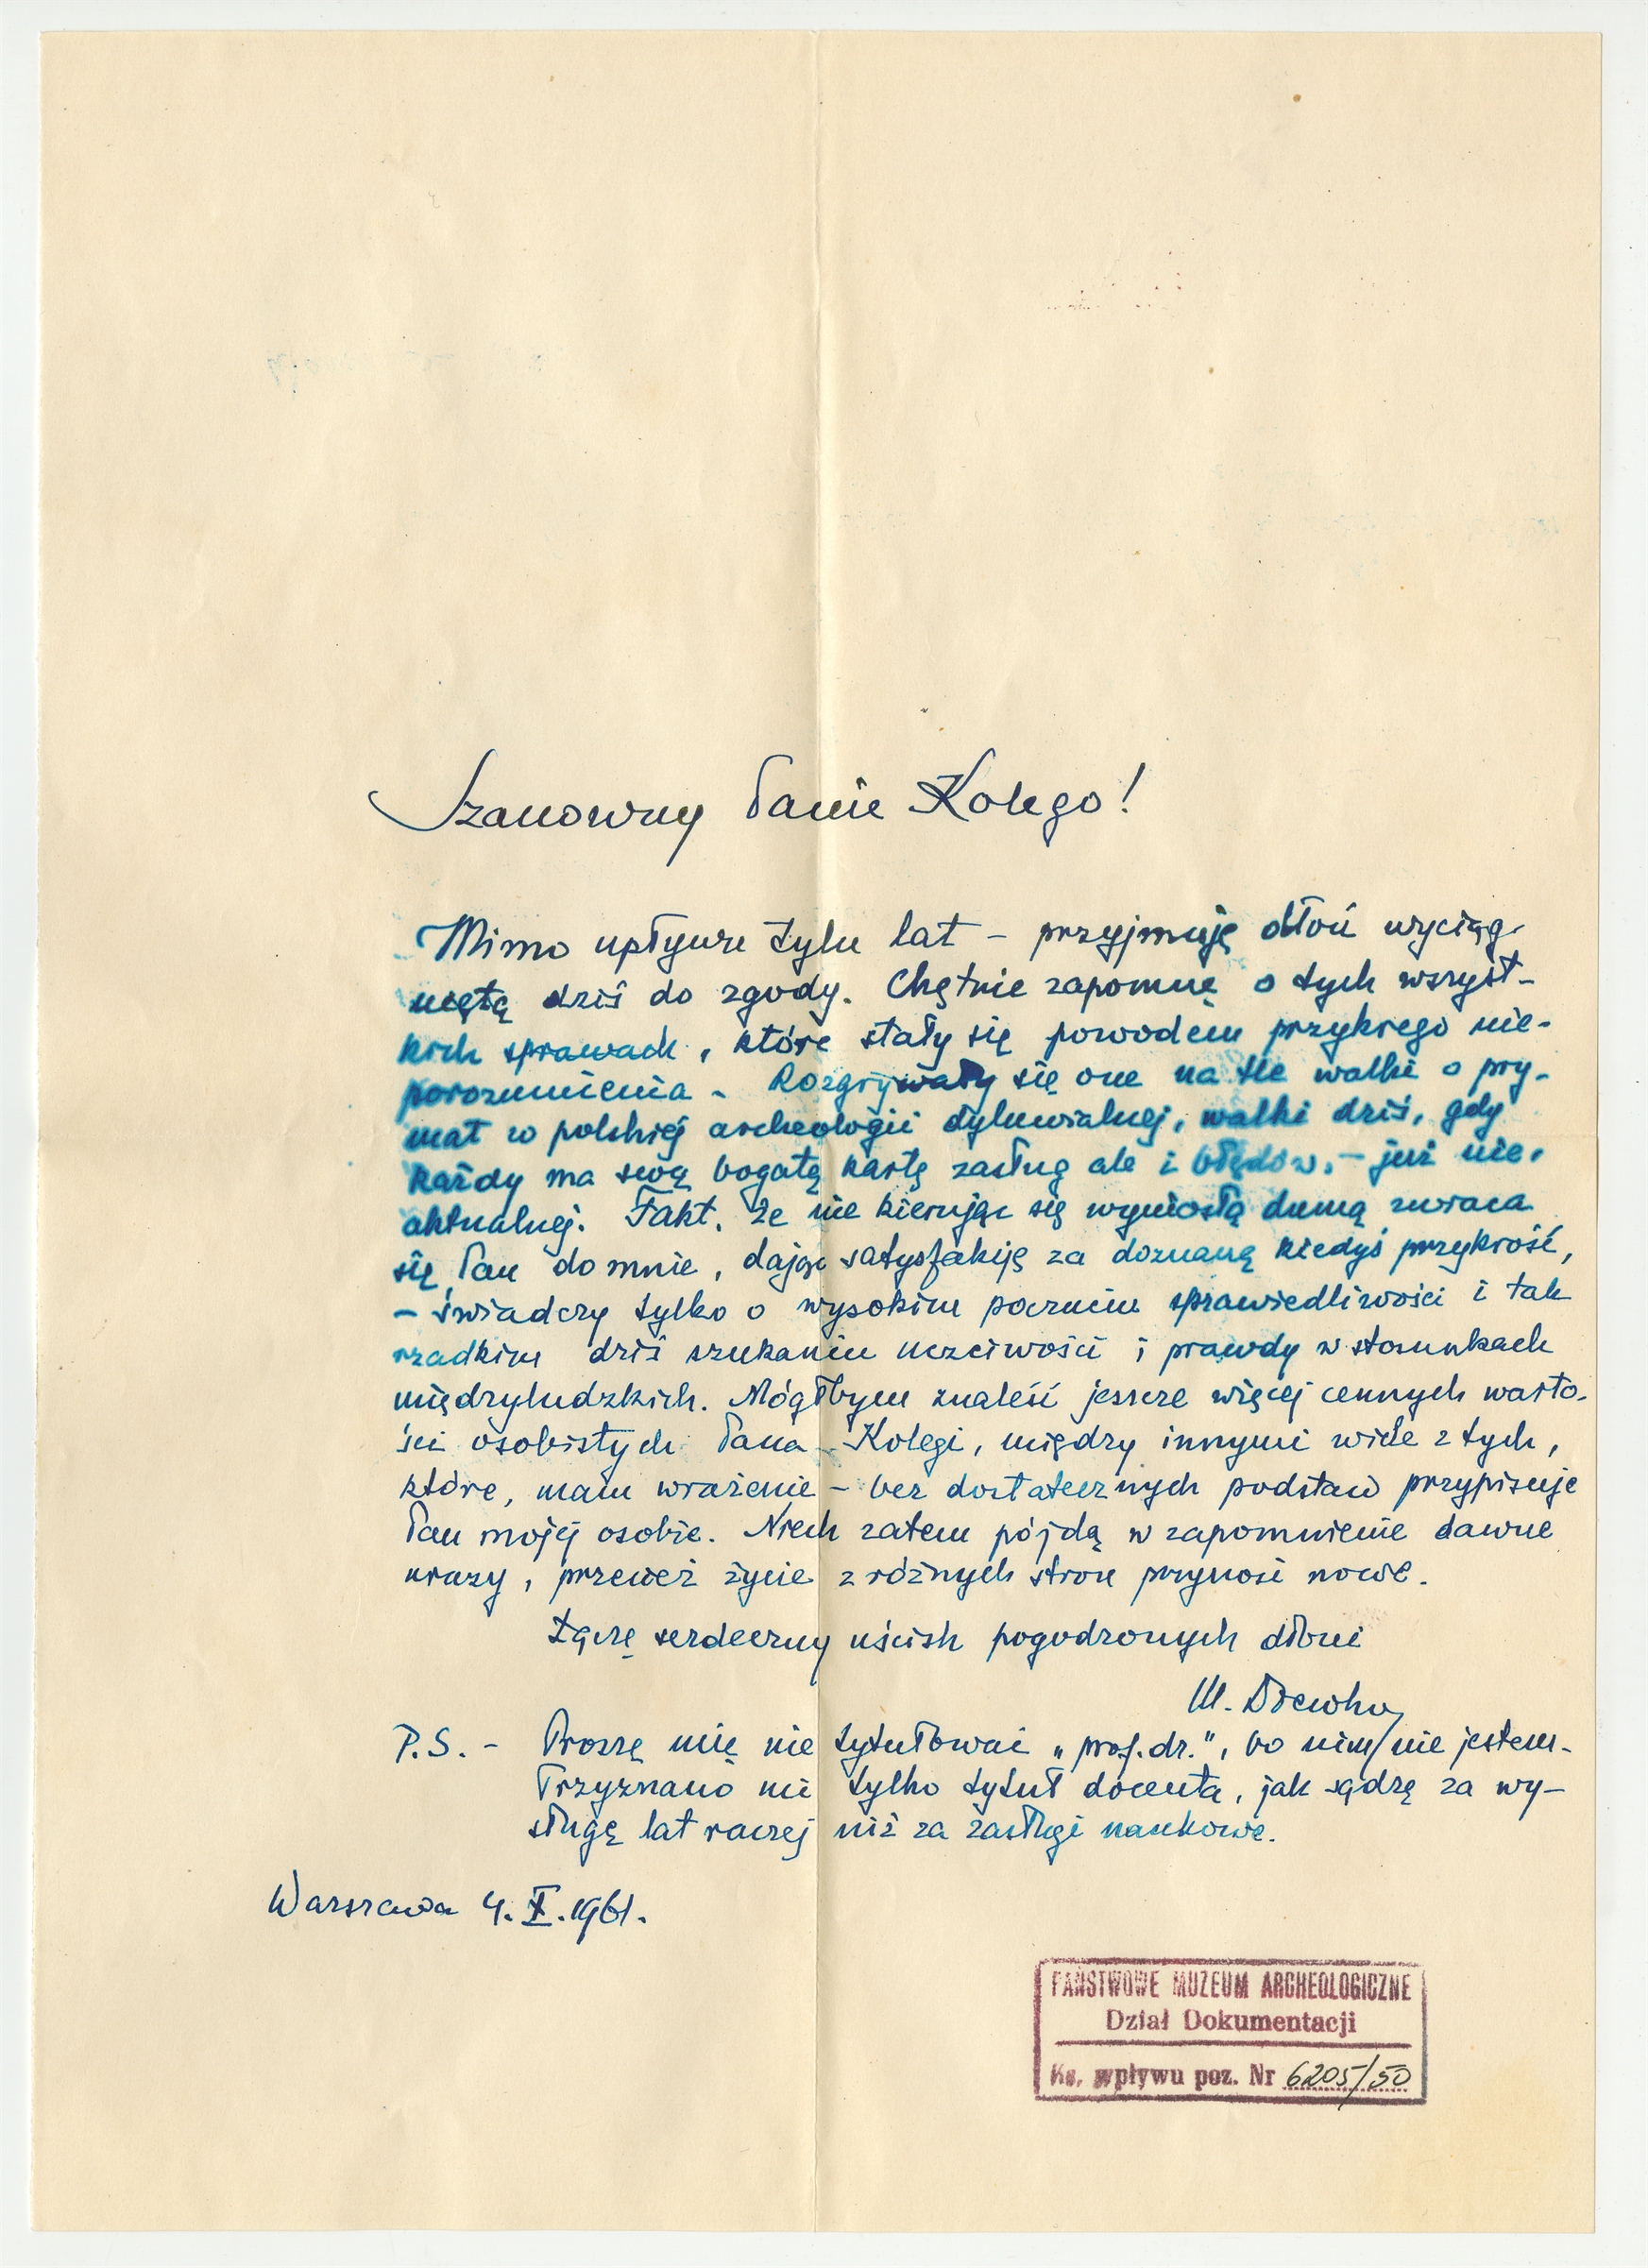 Szanowny Panie Kolego!
Mimo upływu tylu lat – przyjmuję dłoń wyciąg-
niętą dziś do zgody. Chętnie zapomnę o tych wszyst-
kich sprawach, które stały się powodem przykrego nie-
porozumienia. Rozgrywały się one na tle walki o pry-
mat w polskiej archeologii dyluwialnej, walki dziś, gdy
każdy ma swą bogatą kartę zasług ale i błędów, – już nie-
aktualnej. Fakt, że nie kierując się wyniosłą dumą zwraca
się Pan do mnie, dając satysfakcję za doznaną kiedyś przykrość,
– świadczy tylko o wysokim poczuciu sprawiedliwości i tak
rzadkim dziś szukaniu uczciwości i prawdy w stosunkach
międzyludzkich. Mógłbym znaleść jeszcze więcej cennych warto-
ści osobistych Pana Kolegi, między innymi wiele z tych,
które, mam wrażenie – bez dostatecznych podstaw przypisuje
Pan mojej osobie. Niech zatem pójdą w zapomnienie dawne
urazy, przecież życie z różnych stron przynosi nowe.
Łączę serdeczny uścisk pogodzonych dłoni
M. Drewko
P.S. – Proszę mię nie tytułować „prof. dr.", bo nim nie jestem.
Przyznano mi tylko tytuł docenta, jak sądzę za wy-
sługę lat raczej niż za zasługi naukowe.
Warszawa 4. X. 1961.
PAŃSTWOWE MUZEUM ARCHEOLOGICZNE
Dział Dokumentacji
Ks. wpływu poz. Nr 6205/50